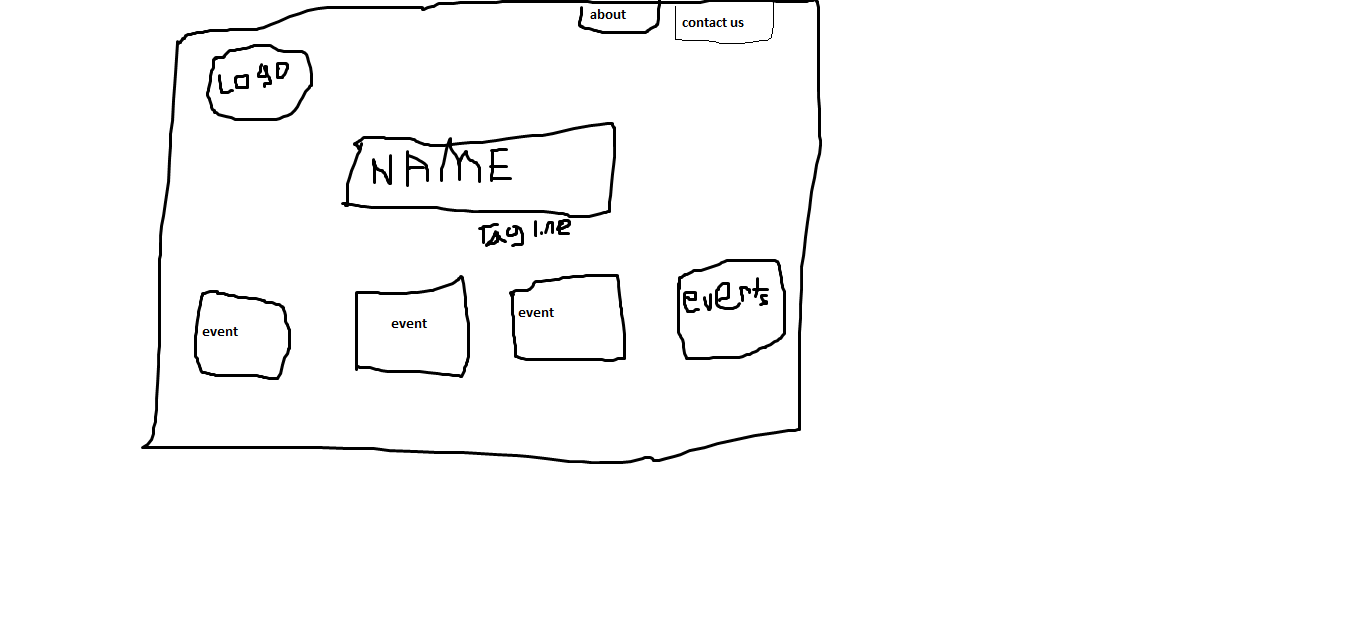 about
contact us
LOGO
NAME
Tag line
event
event
event
events